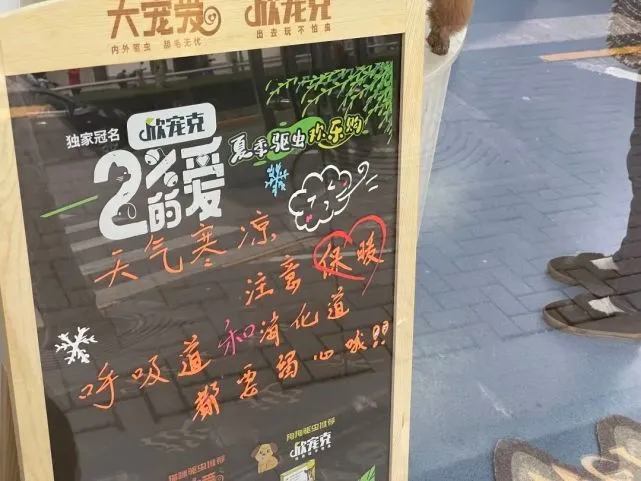 大宠爱
内外驱虫 甜毛无忧
欣宠克
出去玩不怕虫
独家冠名
欣宠克
2%的爱
夏季驱虫欢乐购
天气寒凉
注意保暖
呼吸道和消化道
都要揭心哦!!
狗狗驱虫推荐
欣宠克
猫咪驱虫推荐